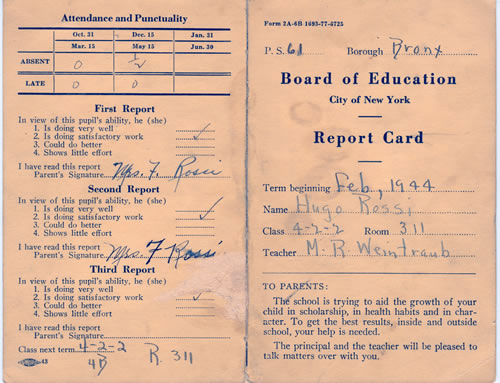 Attendance and Punctuality
Oct. 31 Dec. 15 Jan. 31
Mar. 15 May 15 Jun. 30
ABSENT 0 ½
LATE 0 0
First Report
In view of this pupil's ability, he (she)
1. Is doing very well
2. Is doing satisfactory work ✓
3. Could do better
4. Shows little effort
I have read this report
Parent's Signature Mrs. F. Rossi
Second Report
In view of this pupil's ability, he (she)
1. Is doing very well
2. Is doing satisfactory work ✓
3. Could do better
4. Shows little effort
I have read this report
Parent's Signature Mrs F Rossi
Third Report
In view of this pupil's ability, he (she)
1. Is doing very well
2. Is doing satisfactory work ✓
3. Could do better
4. Shows little effort
I have read this report
Parent's Signature
Class next term 4-2-2 R. 311
4B
43
Form 2A-4B 1693-77-6725
P. S. 61 Borough Bronx
Board of Education
City of New York
Report Card
Term beginning Feb, 1944
Name Hugo Rossi
Class 4-2-2 Room 311
Teacher M. R Weintraub
TO PARENTS:
The school is trying to aid the growth of your
child in scholarship, in health habits and in char-
acter. To get the best results, inside and outside
school, your help is needed.
The principal and the teacher will be pleased to
talk matters over with you.